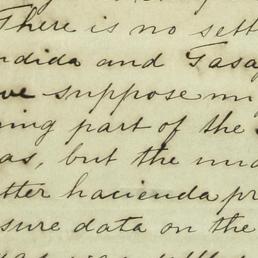 There is no sett
ndida and Tasa
we suppose mi
ning part of the
as, but the
tter hacienda pr
sure data on the